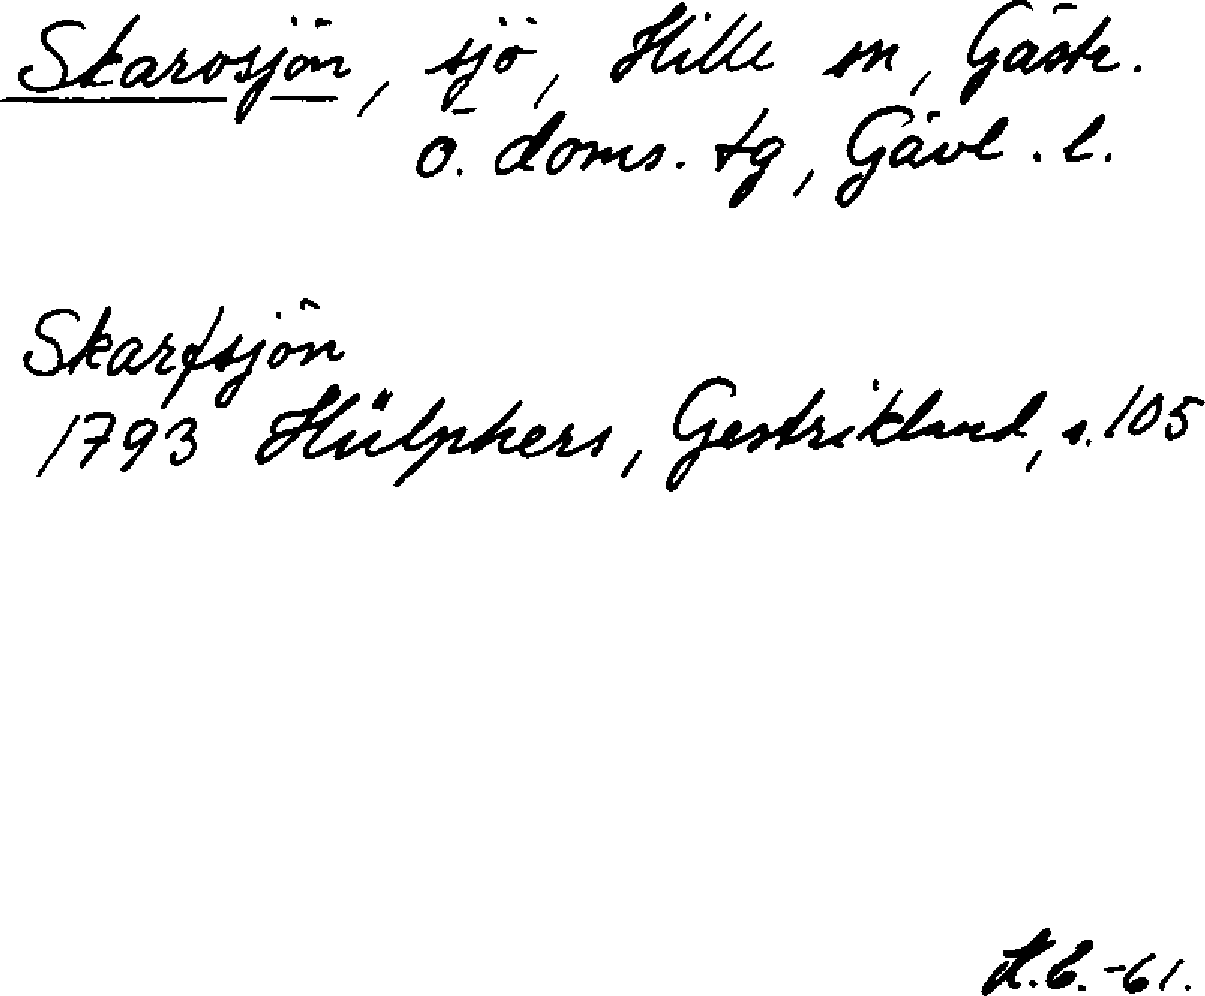 Skarvsjön, sjö, Hille sn, Gästr.
Ö. doms. tg, Gävl. l.
Skarfsjön
1793 Hülphers, Gestrikland, s. 105
K.C. -61.